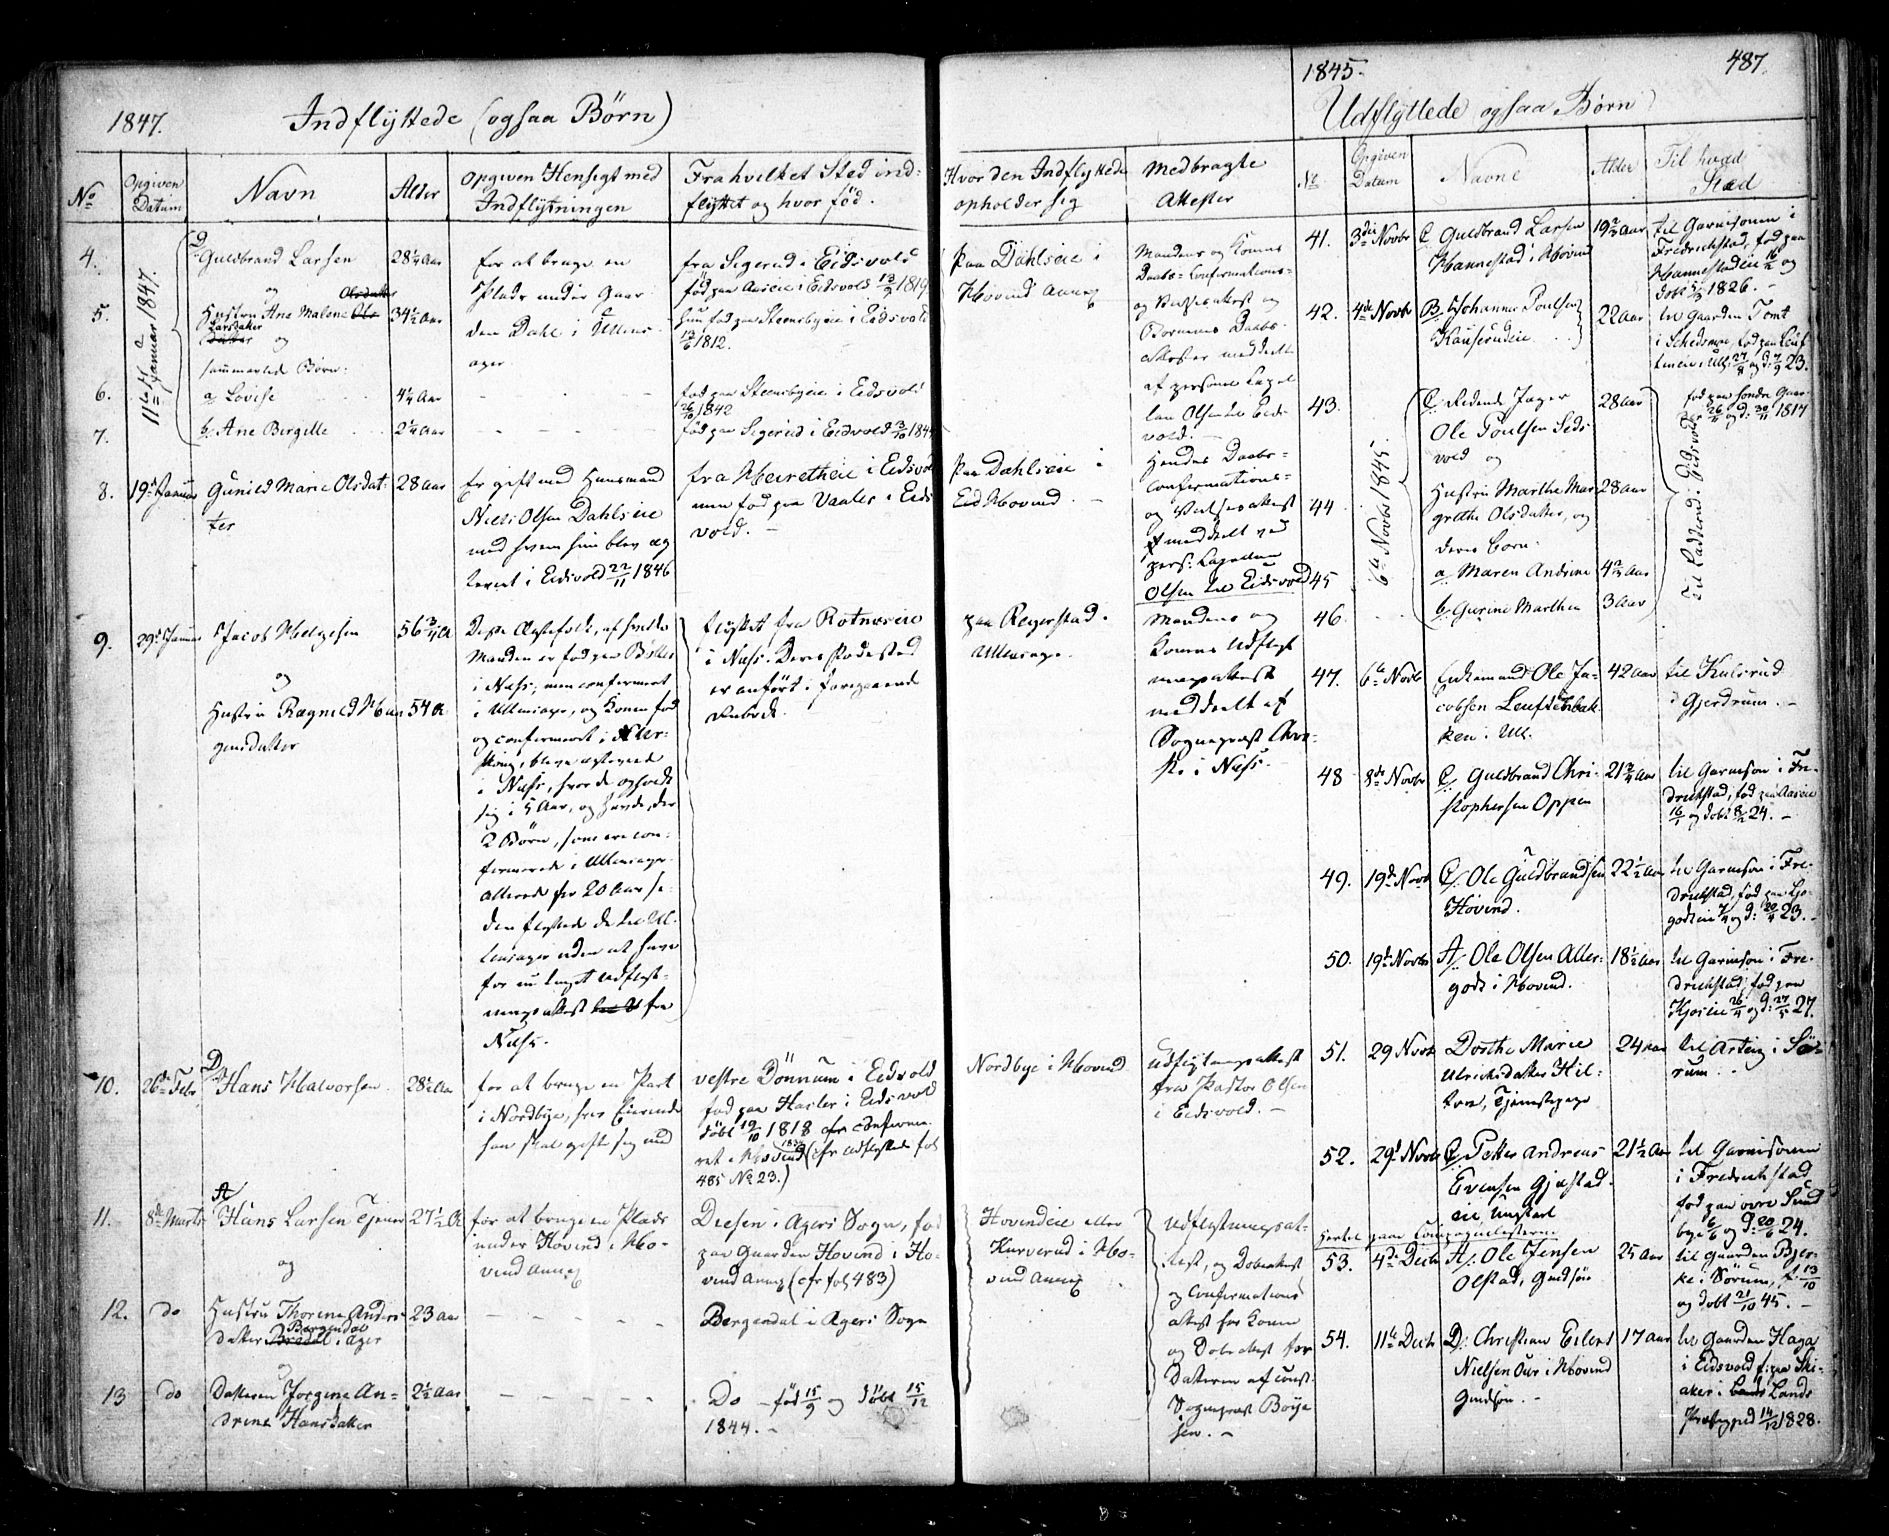 1847.
Indflyttede (ogsaa Børn)
No
Opgiven Datum
Navn
Alder
Opgiven Hensigt med Indflytningen
Fra hvilket Sted indflyttet og hvor fød.
Hvor den Indflyttede opholder sig
Medbragte Attester
4.
11te Januar 1847.
D
Guldbrand Larsen
28 1/4 Aar
for at bruge en
Plads under Gaar
den Dahl i Ullens-
ager
fra Sigerud i Eidsvold
fød paa Aaseie i Eidsvold 13/7 1819
paa Dahlseie i
Hovind Annex
Mandens og Konens
Daabs- Confirmations-
og
Børnenes Daabs-
attester meddeelt
af personel Capel
lan Olsen i Eids
vold.
5.
og
Hustru Ane Malene
Larsdatter
og
sammes Børn:
34 1/2 Aar
hun fød paa Steensbyeie i Eidsvold
13/6 1812.
6.
a. Lovise
4 1/4 Aar
fød paa Steensbyeie i Eidsvold
26/10 1842
7.
b. Ane Bergitte
2 1/4 Aar
fød paa Sigerud i Eidsvold 3/10 1844
8.
19de Januar
Gunild Marie Olsdat-
ter
28 Aar
Er gift med Huusmand
Niels Olsen Dahlseie
med hvem hun blev æg
teviet i Eidsvold 22/11 1846
fra Meiretheie i Eidsvold
men fød paa Vaaler i Eids
vold.
paa Dahlseie i
Eid Hovind
Hendes Daabs-
Confirmations-
og
meddeelt ved
pers: Capellan
Olsen i Eidsvold
9.
29de Januar
Jacob Helgesen
56 3/4 A
Disse Ægtefolk, af hvilke
Manden er fød paa
i Næss, men confirmeret
i Ullensager, og Konen fød
og confirmeret i
bleve ægteviede
i Næss, hvor de opholdt
sig i 5 Aar, og havde der
2 Børn, som ere con-
firmerede i Ullensager.
Allerede for 20 Aar si-
den flyttede de til Ul-
lensager uden at have
for
fra
Næss.
flyttet fra Rotnæseie
i Næss. Deres Fødested
er anført i foregaaende
Rubrik.
paa Reyerstad.
Ullensager.
Mandens og
Konens Udflyt
ningsattest
meddeelt af
Sogneprest
i Næss.
og
Hustru Ragnild
gensdatter
54 A
10.
26de Febr.
D
Hans Halvorsen
28 1/2 Aar
for at bruge en Part
i Nordbye, hvis Eierinde
han skal gifte sig med
vestre Dønnum i Eidsvold
fød paa Hasler i Eidsvold
døbt 19/10 1818 confirme-
ret i Hovind (cfr udflyttede fol
485 No 23.)
Nordbye i Hovind
Udflytningsattest
fra Pastor Olsen
i Eidsvold.
11.
8de Marts
A
Hans Larsen Tjener
27 1/2 A
for at bruge en Plads
under Hovind i Ho-
vind Annex
Diesen i Agers Sogn, fød
paa Gaarden Hovind i Ho-
vind Annex (cfr fol 483)
Hovindeie eller
Kurverud i Ho-
vind Annex
Udflytningsat-
test, og Døbeattest
og Confirmations
attest for Konen
og Døbeattest for
Datteren af const:
Sogneprest Boye
sen.
og
12.
do
Hustru Thorine Anders
datter Bergendal i Ager
23 Aar
Bergendal i Agers Sogn
og
13
do
Datteren Jorgine An-
drine Hansdatter
2 1/2 Aar
Do fød 15/9 og døbt 15/12
1844.
1845.
487.
Udflyttede ogsaa Børn
No
Opgiven Datum
Navne
Alder
Til hvad Sted
41.
3die Novbr
C. Guldbrand Larsen
Hannestad i Hovind
19 2/3 Aar
til Garnisonen i
Fredrichstad, fød paa
Hannestadeie og
døbt 1826.
42.
4de Novbr
B. Johannes Poulsen
Kauserudeie
22 Aar
til Gaarden Tomt
i Schedsmo, fød paa
i Ull: 27/8 og d: 7/9 23.
43.
6te Novbr 1845.
C. Ridende Jæger
Ole Poulsen Eids
vold og
28 Aar
Til Ladserud i Eidsvold
fød paa søndre
26/11 og d: 30/11 1817
44
Hustru Marthe Mar
grethe Olsdatter, og
deres Børn:
28 Aar
45
a. Maren Andrine
4 2/3 Aar
46.
b. Gurine Marthea
3 Aar
47.
6te Novbr
Enkemand Ole Ja-
cobsen
i Ull.
42 Aar
til Kulsrud
i Gjerdrum.
48
8de Novbr
C. Guldbrand Chri-
stophersen Oppen
21 3/4 Aar
til Garnison i Fre-
drichstad, fød paa Aaseie
16/1 og døbt 8/2 24.
49.
19de Novbr
C. Ole Guldbrandsen
Hovind.
22 1/2 Aar
til Garnison i Fre-
drichstad, fød paa
og d: 20/4 23.
50.
19de Novbr
A. Ole Olsen Aller-
godt i Hovind.
18 1/2 Aar
til Garnison i Fre-
drichstad, fød paa
Kjoseie 26/4 og d: 27/5 27.
51.
29 Novbr
Dorthe Marie
Ulrichsdatter Hil-
ton, Tjenestepige
24 Aar
til Arteig i Sø-
rum.
52.
29de Novbr
C. Petter Andreas
Evensen Gjestad-
eie, Ungkarl
21 1/2 Aar
til Garnisonen
i Fredrichstad
fød paa øvre Sund
bye 6/6 og d: 20/6 24.
53.
4de Decbr
A. Ole Jensen
Olstad, Gudsøn
25 Aar
til Gaarden Bjer-
ke i Sørum, f. 13/10
og døbt 21/10 45.
54.
11te Decbr
D. Christian Eilert
Nielsen Our i Hovind
Gudsøn.
17 Aar
til Gaarden Haga
i Eidsvold f. paa Ski-
aker i Lands
Præstegjeld 14/12 1828.